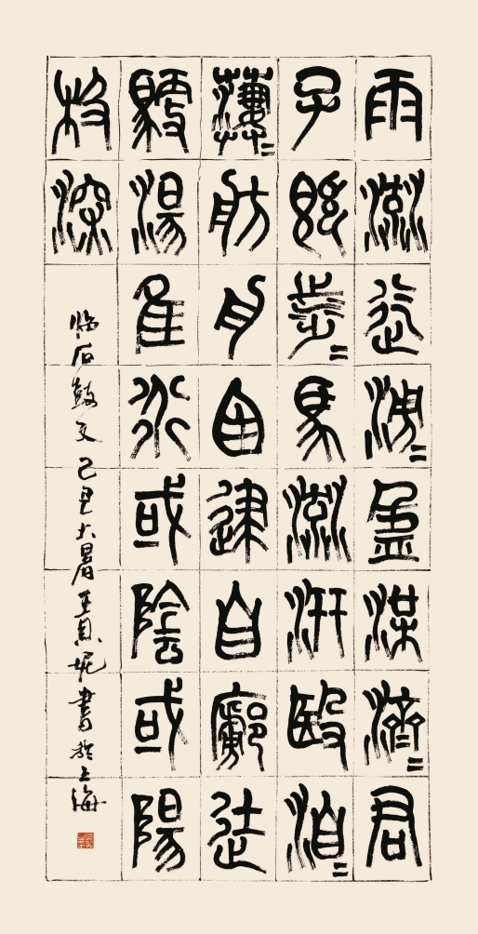 雨流迄盈渫濟=君
子即涉=馬流汧殹洎=
萋=舫舟西逮自廓徒
馭湯隹衍或陰或陽
极深
临石鼓文己丑大暑王妮書於上海